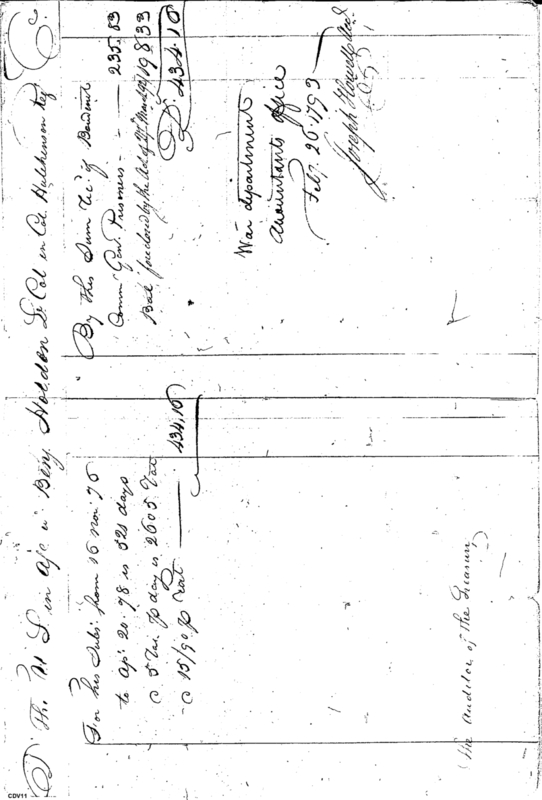 Dr The U S in a/c w. Benj Holden Lt Col in Col Hutchinson regt Cr
For his Subs. from 16 Nov 76
to Apl 20. 78 is 521 days
@ 5 rat. p day is 2605 rat
@ 15/90 p rat 434.16
By this Sum rec'd of Boudinot
Comm Genl Prisoners 235.83
Bal foreclosed by the Act of 198 33
D. 434.16
War department
Accountants Office
Feby. 26. 1793
Joseph Howell
The Auditor of the Treasury
CDV11